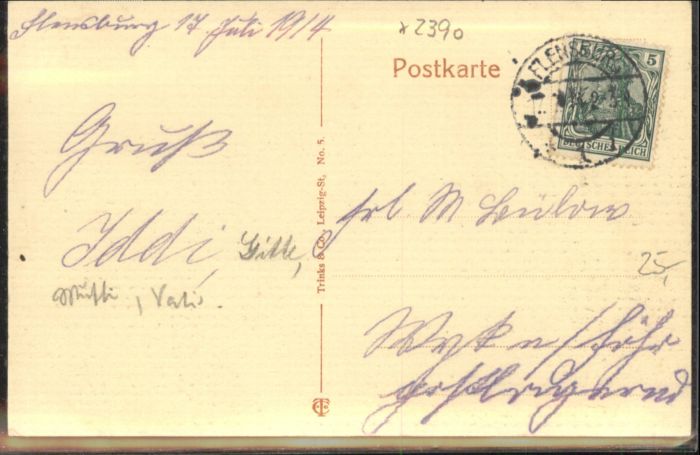 Flensburg 17 Juli 1914
x 2390
Postkarte
FLENSBURG
5
DEUTSCHES REICH
Gruß
Iddi, Gitte,
Mutti, Vati.
Trinks & Co., Leipzig-St, No. 5.
Frl. M Bülow
25,
Wyk a/Föhr
postlagernd